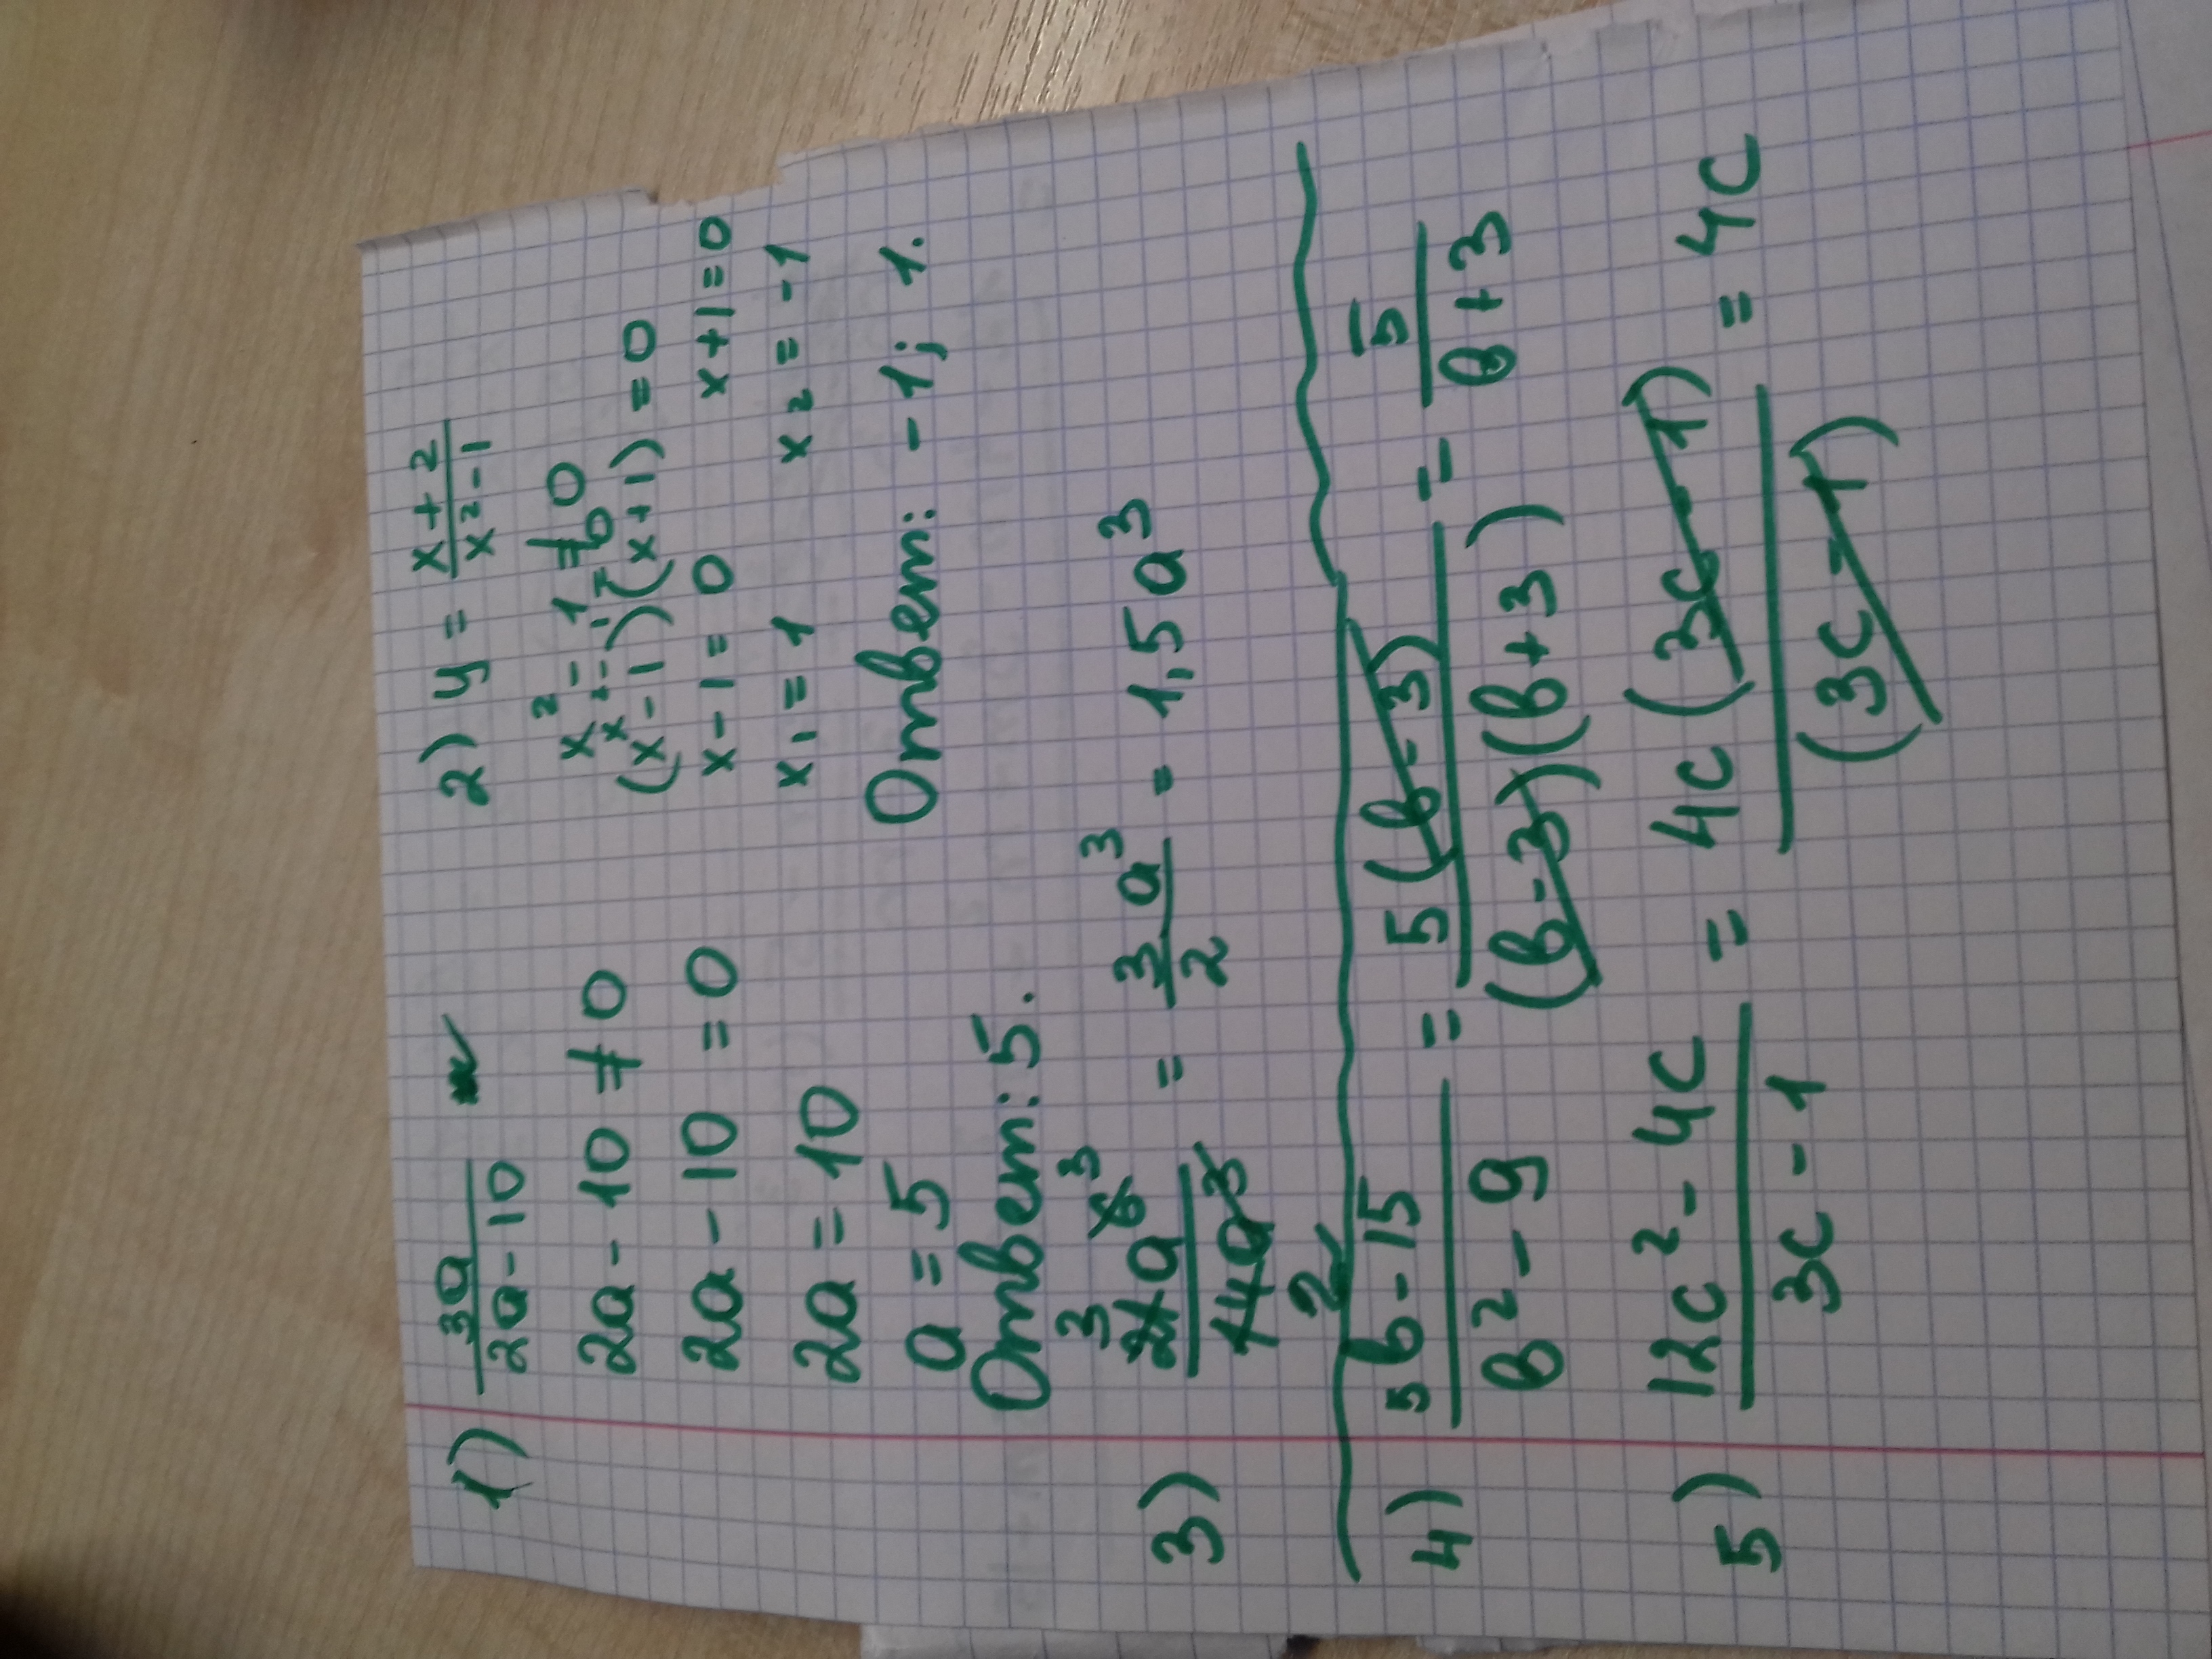 1) 3a/(2a-10)
2a - 10 ≠ 0
2a - 10 = 0
2a = 10
a = 5
Ответ: 5.
2) y = (x+2)/(x²-1)
x² - 1 ≠ 0
x² - 1 = 0
(x-1)(x+1) = 0
x-1=0 x+1=0
x₁=1 x₂=-1
Ответ: -1; 1.
3) 21a⁶/14a³ = 3/2 a³ = 1,5a³
4) (5b-15)/(b²-9) = 5(b-3)/((b-3)(b+3)) = 5/(b+3)
5) (12c²-4c)/(3c-1) = 4c(3c-1)/(3c-1) = 4c